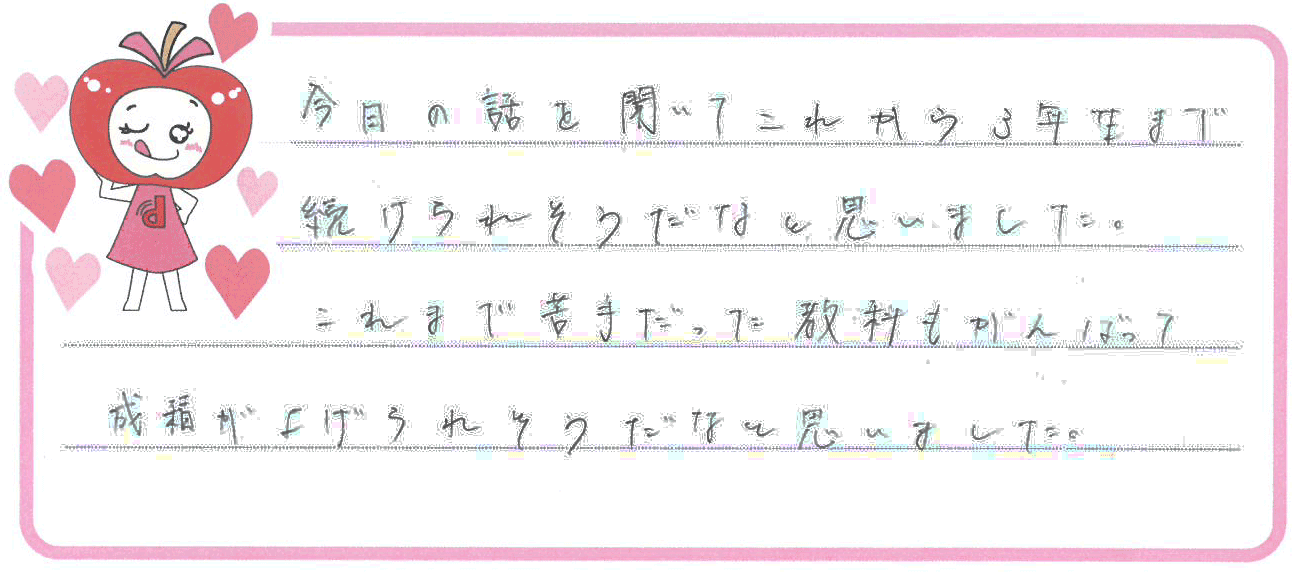 今日の話を聞いてこれから3年生まで
続けられそうだなと思いました。
これまで苦手だった教科もがんばって
成積が上げられそうだなと思いました。